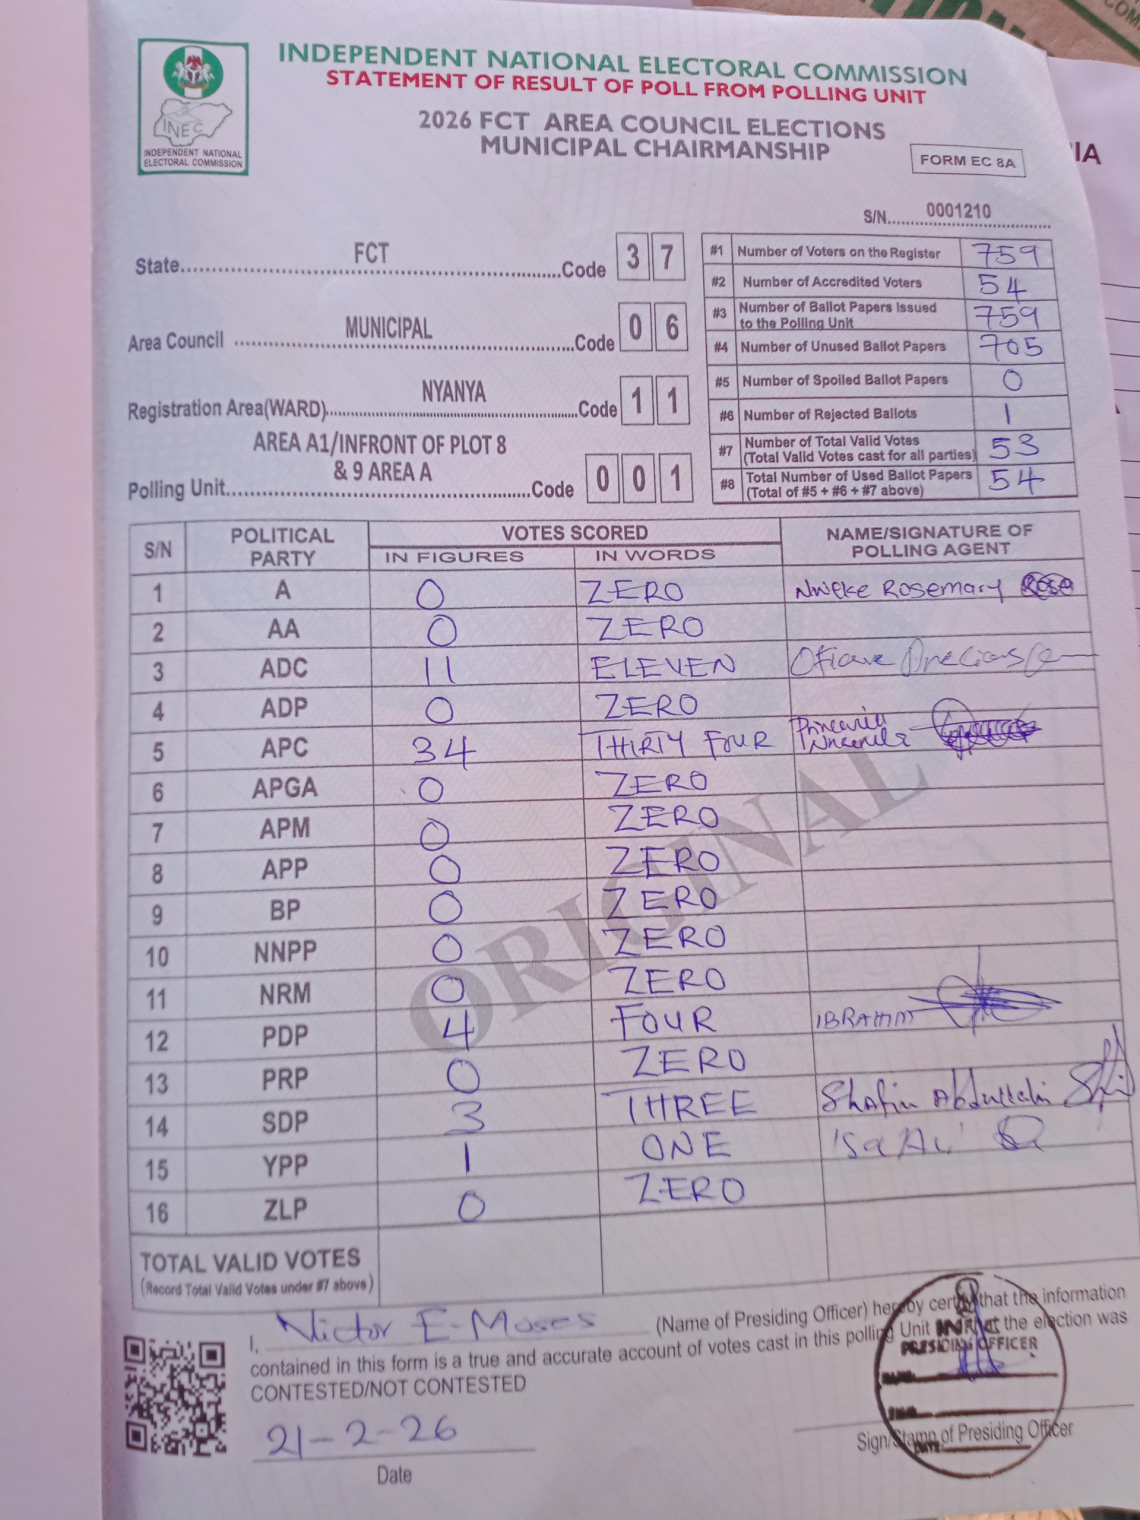 INDEPENDENT NATIONAL ELECTORAL COMMISSION
STATEMENT OF RESULT OF POLL FROM POLLING UNIT
2026 FCT AREA COUNCIL ELECTIONS
MUNICIPAL CHAIRMANSHIP
INEC
INDEPENDENT NATIONAL
ELECTORAL COMMISSION
FORM EC 8A
IA
S/N. 0001210
State FCT Code 3 7
Area Council MUNICIPAL Code 0 6
Registration Area(WARD) NYANYA Code 1 1
AREA A1/INFRONT OF PLOT 8
& 9 AREA A
Polling Unit Code 0 0 1
#1 Number of Voters on the Register 759
#2 Number of Accredited Voters 54
#3 Number of Ballot Papers Issued to the Polling Unit 759
#4 Number of Unused Ballot Papers 705
#5 Number of Spoiled Ballot Papers 0
#6 Number of Rejected Ballots 1
#7 Number of Total Valid Votes (Total Valid Votes cast for all parties) 53
#8 Total Number of Used Ballot Papers (Total of #5 + #6 + #7 above) 54
S/N POLITICAL PARTY VOTES SCORED NAME/SIGNATURE OF POLLING AGENT
IN FIGURES IN WORDS
1 A 0 ZERO Nweke Rosemary Rose
2 AA 0 ZERO
3 ADC 11 ELEVEN
4 ADP 0 ZERO
5 APC 34 THIRTY FOUR
6 APGA 0 ZERO
7 APM 0 ZERO
8 APP 0 ZERO
9 BP 0 ZERO
10 NNPP 0 ZERO
11 NRM 0 ZERO
12 PDP 4 FOUR IBRAHIM
13 PRP 0 ZERO
14 SDP 3 THREE Abdullahi
15 YPP 1 ONE
16 ZLP 0 ZERO
ORIGINAL
TOTAL VALID VOTES
(Record Total Valid Votes under #7 above)
I, Victor E. Moses (Name of Presiding Officer) hereby certify that the information
contained in this form is a true and accurate account of votes cast in this polling Unit and that the election was
CONTESTED/NOT CONTESTED
PRESIDING OFFICER
21-2-26
Date
Sign/Stamp of Presiding Officer
DATE